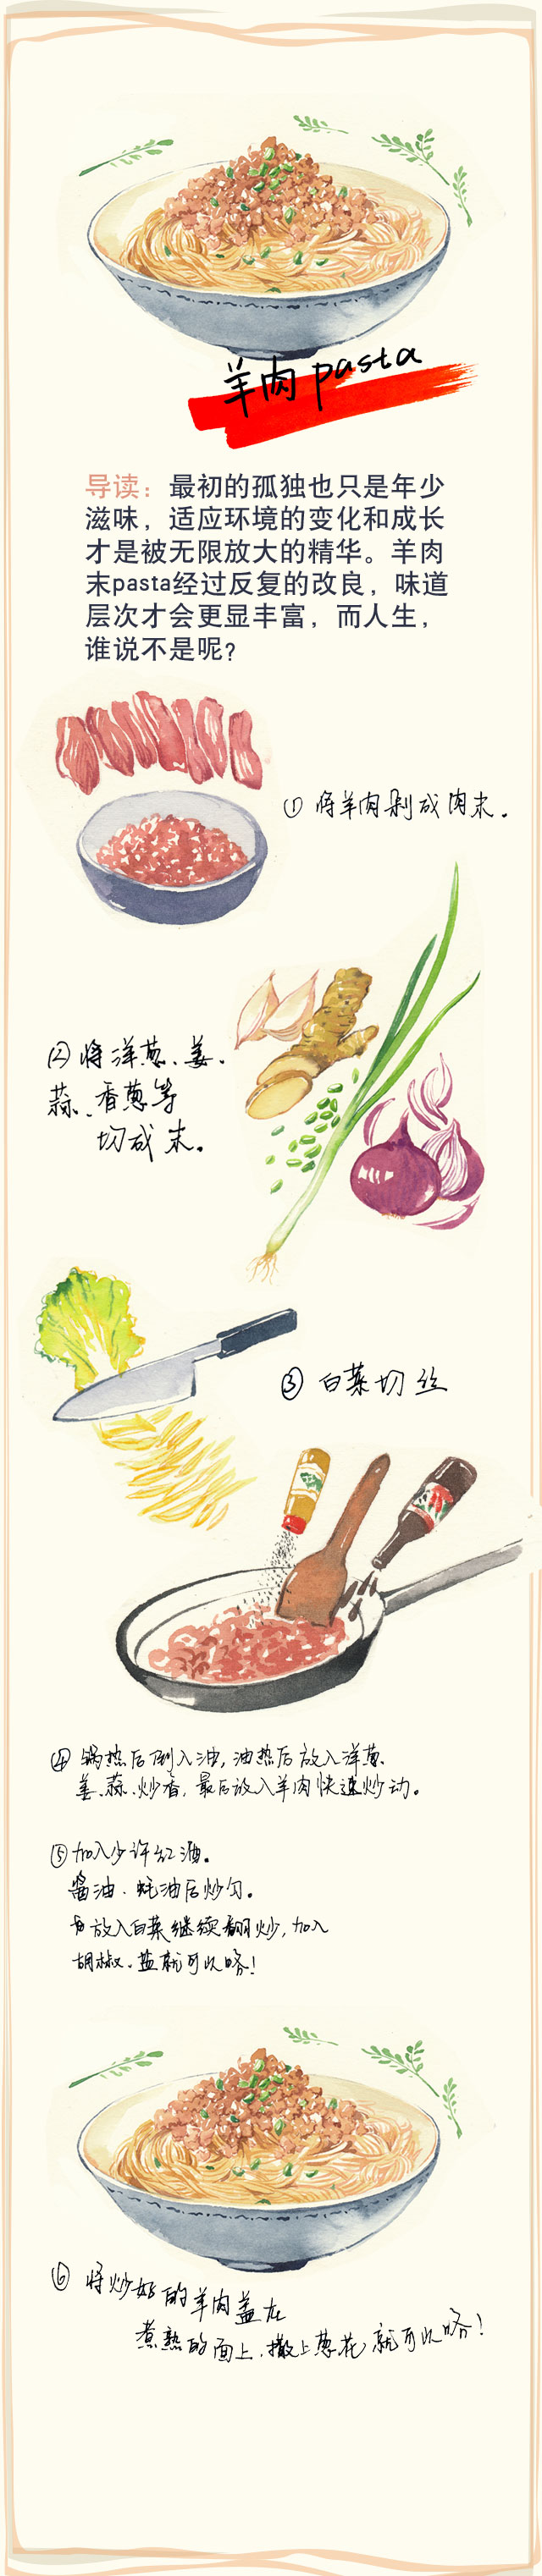 羊肉 pasta
导读：最初的孤独也只是年少
滋味，适应环境的变化和成长
才是被无限放大的精华。羊肉
末pasta经过反复的改良，味道
层次才会更显丰富，而人生，
谁说不是呢？
① 将羊肉剁成肉末。
② 将洋葱、姜、
蒜、香葱等
切成末。
③ 白菜切丝
④ 锅热后倒入油,油热后放入洋葱、
姜、蒜、炒香,最后放入羊肉快速炒动。
⑤ 加入少许红酒。
酱油、蚝油后炒匀。
放入白菜继续翻炒,加入
胡椒、盐就可以咯!
⑥ 将炒好的羊肉盖在
煮熟的面上、撒上葱花就可以咯!